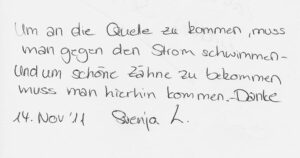 Um an die Quelle zu kommen, muss
man gegen den Strom schwimmen-
Und um schöne Zähne zu bekommen
muss man hierhin kommen.-Danke
14. Nov '11 Svenja L.